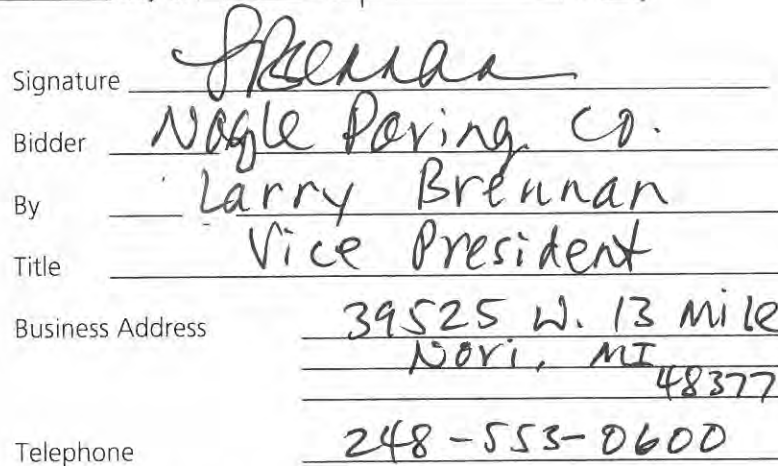 Signature LBrennan
Bidder Nagle Paving Co.
By Larry Brennan
Title Vice President
Business Address 39525 W. 13 Mile
Novi, MI
48377
Telephone 248-553-0600